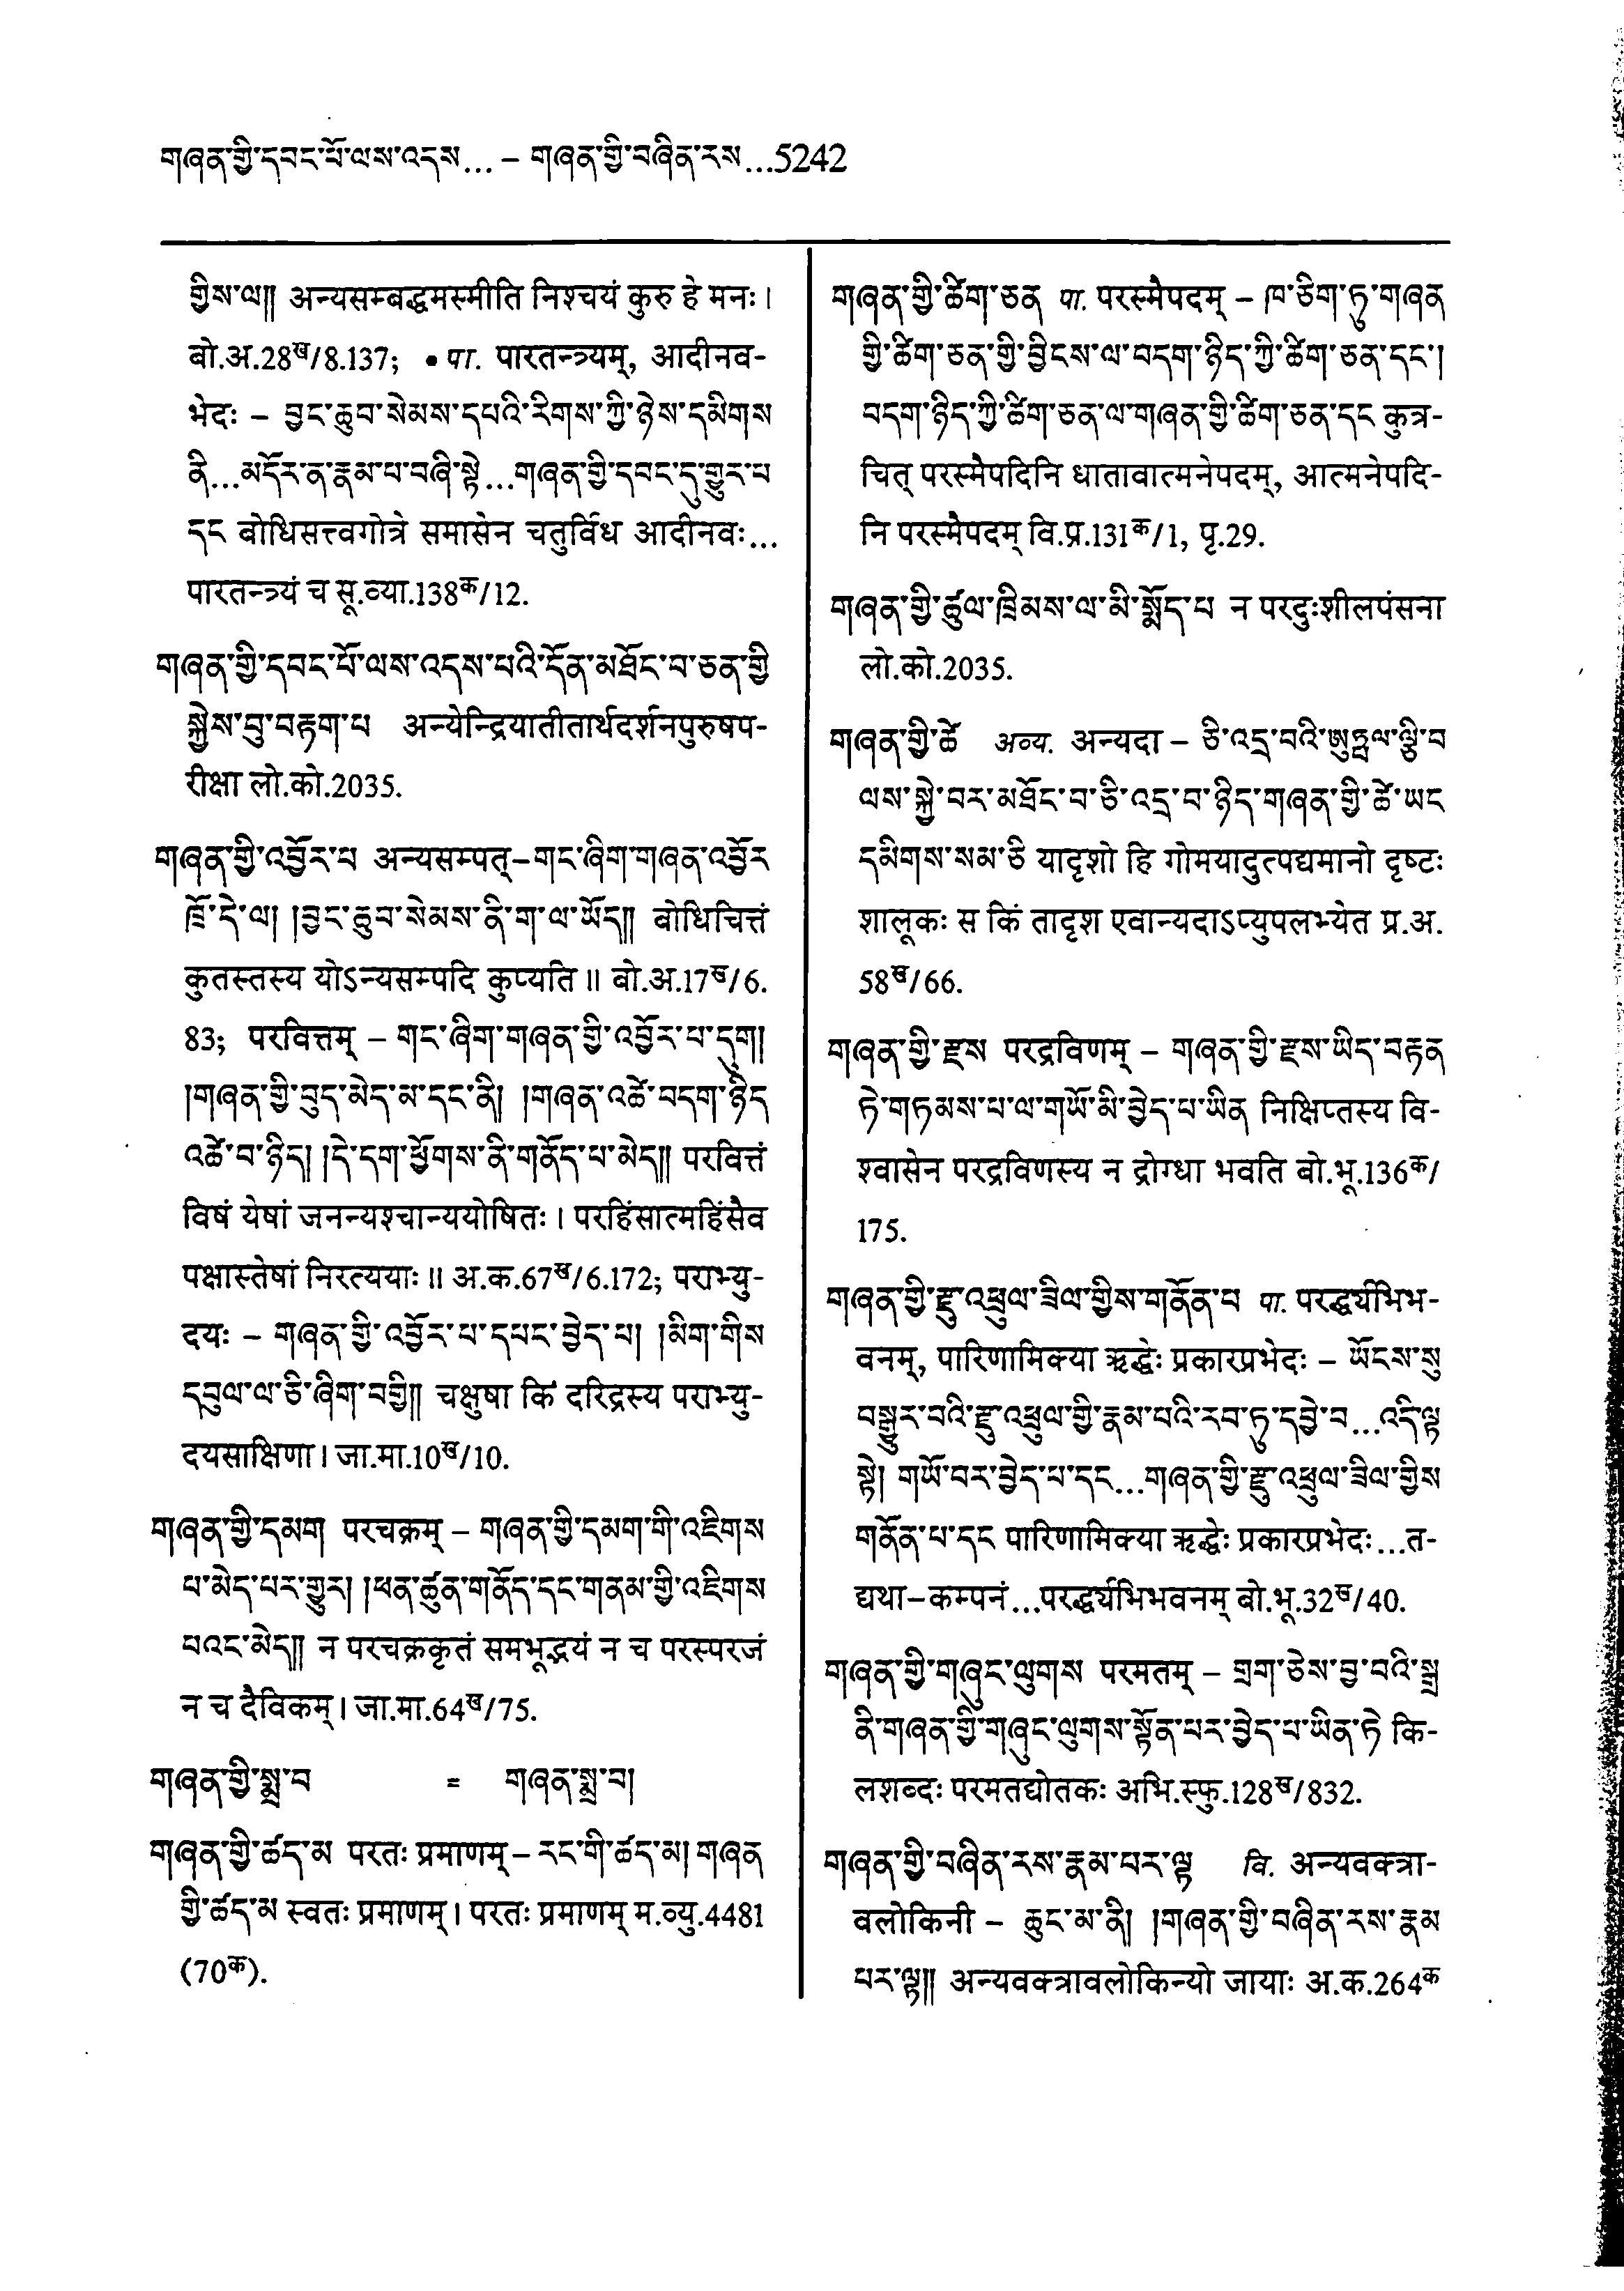 གཞན་གྱི་དབང་པོ་ལས་འདས... – གཞན་གྱི་བཞིན་རས...5242
གྱིས་ལ༎ अन्यसम्बद्धमस्मीति निश्चयं कुरु हे मनः ।
बो.अ.28ख/8.137; • पा. पारतन्त्र्यम्, आदीनव-
भेदः – བྱང་ཆུབ་སེམས་དཔའི་རིགས་ཀྱི་ཉེས་དམིགས
ནི...མདོར་ན་རྣམ་པ་བཞི་སྟེ...གཞན་གྱི་དབང་དུ་གྱུར་པ
དང बोधिसत्त्वगोत्रे समासेन चतुर्विध आदीनवः...
पारतन्त्र्यं च सू.व्या.138क/12.
གཞན་གྱི་དབང་པོ་ལས་འདས་པའི་དོན་མཐོང་བ་ཅན་གྱི
སྐྱེས་བུ་བརྟག་པ अन्येन्द्रियातीतार्थदर्शनपुरुषप-
रीक्षा लो.को.2035.
གཞན་གྱི་འབྱོར་པ अन्यसम्पत्–གང་ཞིག་གཞན་འབྱོར
ཁྲོ་དེ་ལ། །བྱང་ཆུབ་སེམས་ནི་ག་ལ་ཡོད༎ बोधिचित्तं
कुतस्तस्य योऽन्यसम्पदि कुप्यति ॥ बो.अ.17ख/6.
83; परवित्तम् – གང་ཞིག་གཞན་གྱི་འབྱོར་པ་དུག།
།གཞན་གྱི་བུད་མེད་མ་དང་ནི། །གཞན་འཚེ་བདག་ཉིད
འཚེ་བ་ཉིད། །དེ་དག་ཕྱོགས་ནི་གནོད་པ་མེད༎ परवित्तं
विषं येषां जनन्यश्चान्ययोषितः । परहिंसात्महिंसैव
पक्षास्तेषां निरत्ययाः ॥ अ.क.67ख/6.172; पराभ्यु-
दयः – གཞན་གྱི་འབྱོར་པ་དཔང་བྱེད་པ། །མིག་གིས
དབུལ་ལ་ཅི་ཞིག་བགྱི༎ चक्षुषा किं दरिद्रस्य पराभ्यु-
दयसाक्षिणा । जा.मा.10ख/10.
གཞན་གྱི་དམག परचक्रम् – གཞན་གྱི་དམག་གི་འཇིགས
པ་མེད་པར་གྱུར། །ཕན་ཚུན་གནོད་དང་གནམ་གྱི་འཇིགས
པའང་མེད༎ न परचक्रकृतं समभूद्भयं न च परस्परजं
न च दैविकम् । जा.मा.64ख/75.
གཞན་གྱི་སྨྲ་བ = གཞན་སྨྲ་བ།
གཞན་གྱི་ཚད་མ परतः प्रमाणम् – རང་གི་ཚད་མ། གཞན
གྱི་ཚད་མ स्वतः प्रमाणम् । परतः प्रमाणम् म.व्यु.4481
(70क).
གཞན་གྱི་ཚིག་ཅན पा. परस्मैपदम् – ཁ་ཅིག་ཏུ་གཞན
གྱི་ཚིག་ཅན་གྱི་བྱིངས་ལ་བདག་ཉིད་ཀྱི་ཚིག་ཅན་དང་།
བདག་ཉིད་ཀྱི་ཚིག་ཅན་ལ་གཞན་གྱི་ཚིག་ཅན་དང कुत्र-
चित् परस्मैपदिनि धातावात्मनेपदम्, आत्मनेपदि-
नि परस्मैपदम् वि.प्र.131क/1, पृ.29.
གཞན་གྱི་ཚུལ་ཁྲིམས་ལ་མི་སྨོད་པ न परदुःशीलपंसना
लो.को.2035.
གཞན་གྱི་ཚེ अव्य. अन्यदा – ཅི་འདྲ་བའི་ཨུཏྤལ་ལྕི་བ
ལས་སྐྱེ་བར་མཐོང་བ་ཅི་འདྲ་བ་ཉིད་གཞན་གྱི་ཚེ་ཡང
དམིགས་སམ་ཅི यादृशो हि गोमयादुत्पद्यमानो दृष्टः
शालूकः स किं तादृश एवान्यदाऽप्युपलभ्येत प्र.अ.
58ख/66.
གཞན་གྱི་རྫས परद्रविणम् – གཞན་གྱི་རྫས་ཡིད་བརྟན
ཏེ་གཏམས་པ་ལ་གཡོ་མི་བྱེད་པ་ཡིན निक्षिप्तस्य वि-
श्वासेन परद्रविणस्य न द्रोग्धा भवति बो.भू.136क/
175.
གཞན་གྱི་རྫུ་འཕྲུལ་ཟིལ་གྱིས་གནོན་པ पा. परर्द्ध्यभिभ-
वनम्, पारिणामिक्या ऋद्धेः प्रकारप्रभेदः – ཡོངས་སུ
བསྒྱུར་བའི་རྫུ་འཕྲུལ་གྱི་རྣམ་པའི་རབ་ཏུ་དབྱེ་བ...འདི་ལྟ
སྟེ། གཡོ་བར་བྱེད་པ་དང...གཞན་གྱི་རྫུ་འཕྲུལ་ཟིལ་གྱིས
གནོན་པ་དང पारिणामिक्या ऋद्धेः प्रकारप्रभेदः...त-
द्यथा–कम्पनं...परर्द्ध्यभिभवनम् बो.भू.32ख/40.
གཞན་གྱི་གཞུང་ལུགས परमतम् – གྲག་ཅེས་བྱ་བའི་སྒྲ
ནི་གཞན་གྱི་གཞུང་ལུགས་སྟོན་པར་བྱེད་པ་ཡིན་ཏེ कि-
लशब्दः परमतद्योतकः अभि.स्फु.128ख/832.
གཞན་གྱི་བཞིན་རས་རྣམ་པར་ལྟ वि. अन्यवक्त्रा-
वलोकिनी – ཆུང་མ་ནི། །གཞན་གྱི་བཞིན་རས་རྣམ
པར་ལྟ༎ अन्यवक्त्रावलोकिन्यो जायाः अ.क.264क